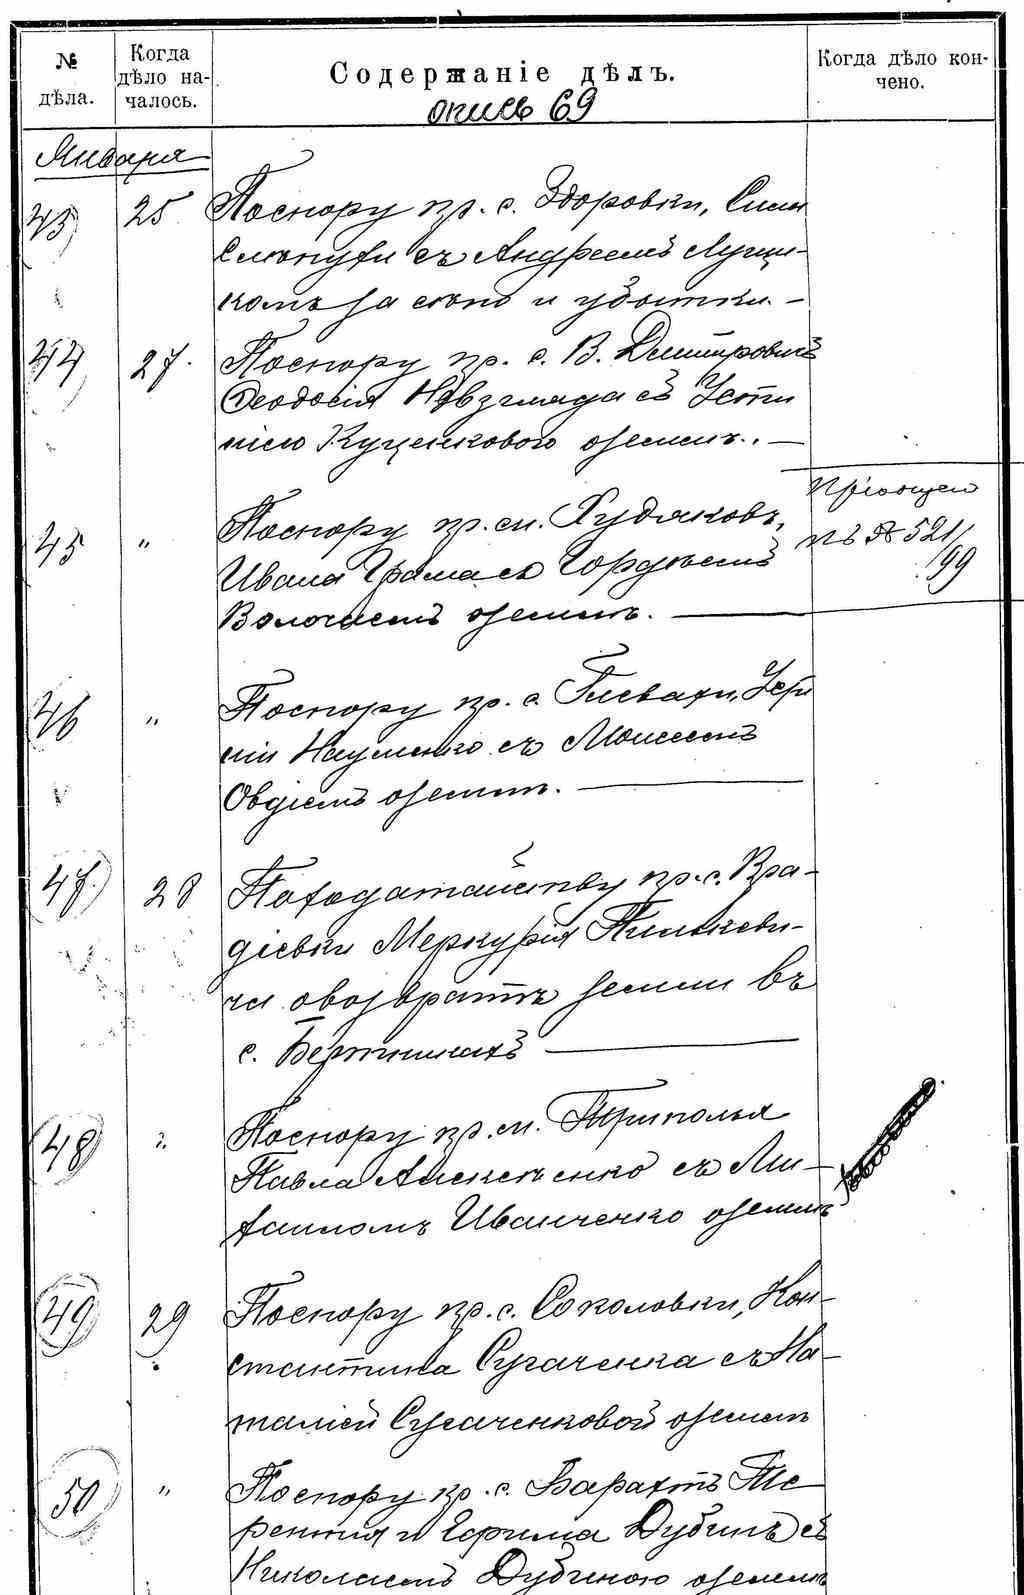 № дѣла.
Когда дѣло на-
чалось.
Содержаніе дѣлъ.
Когда дѣло кон-
чено.
опись 69
Января
43 25 По спору кр. с. Здоровки, Силы
с Андреемъ Лущи-
комъ за сѣно и убытки. —
44 27. По спору кр. с. В. Дмитровичъ
Ѳеодосія Невзгляда съ Усти
ніею Куценкового о земли. —
45 " По спору кр. м. Худяковъ,
Ивана Грома съ Гордѣемъ
Волочаемъ о земли. —
Пріобщен
къ № 521/99
46 " По спору кр. с. Глевахи,
Науменко съ Моисеемъ
Овдіемъ о земли. —
47. 28 По ходатайству кр. с. Вра-
діевки Меркурія Пилькеви-
ча о возвратѣ земли въ
с. —
48 " По спору кр. м. Триполья
Павла Алексѣенко съ Ми-
хаиломъ Иванченко о земли
49 29 По спору кр. с. Соколовки, Кон-
стантина Сугаченка съ На-
таліей Сугаченковой о земли
50 " По спору кр. с. Барахтъ Те
рентія и Ефима Дубинъ съ
Николаемъ Дубиною о земли